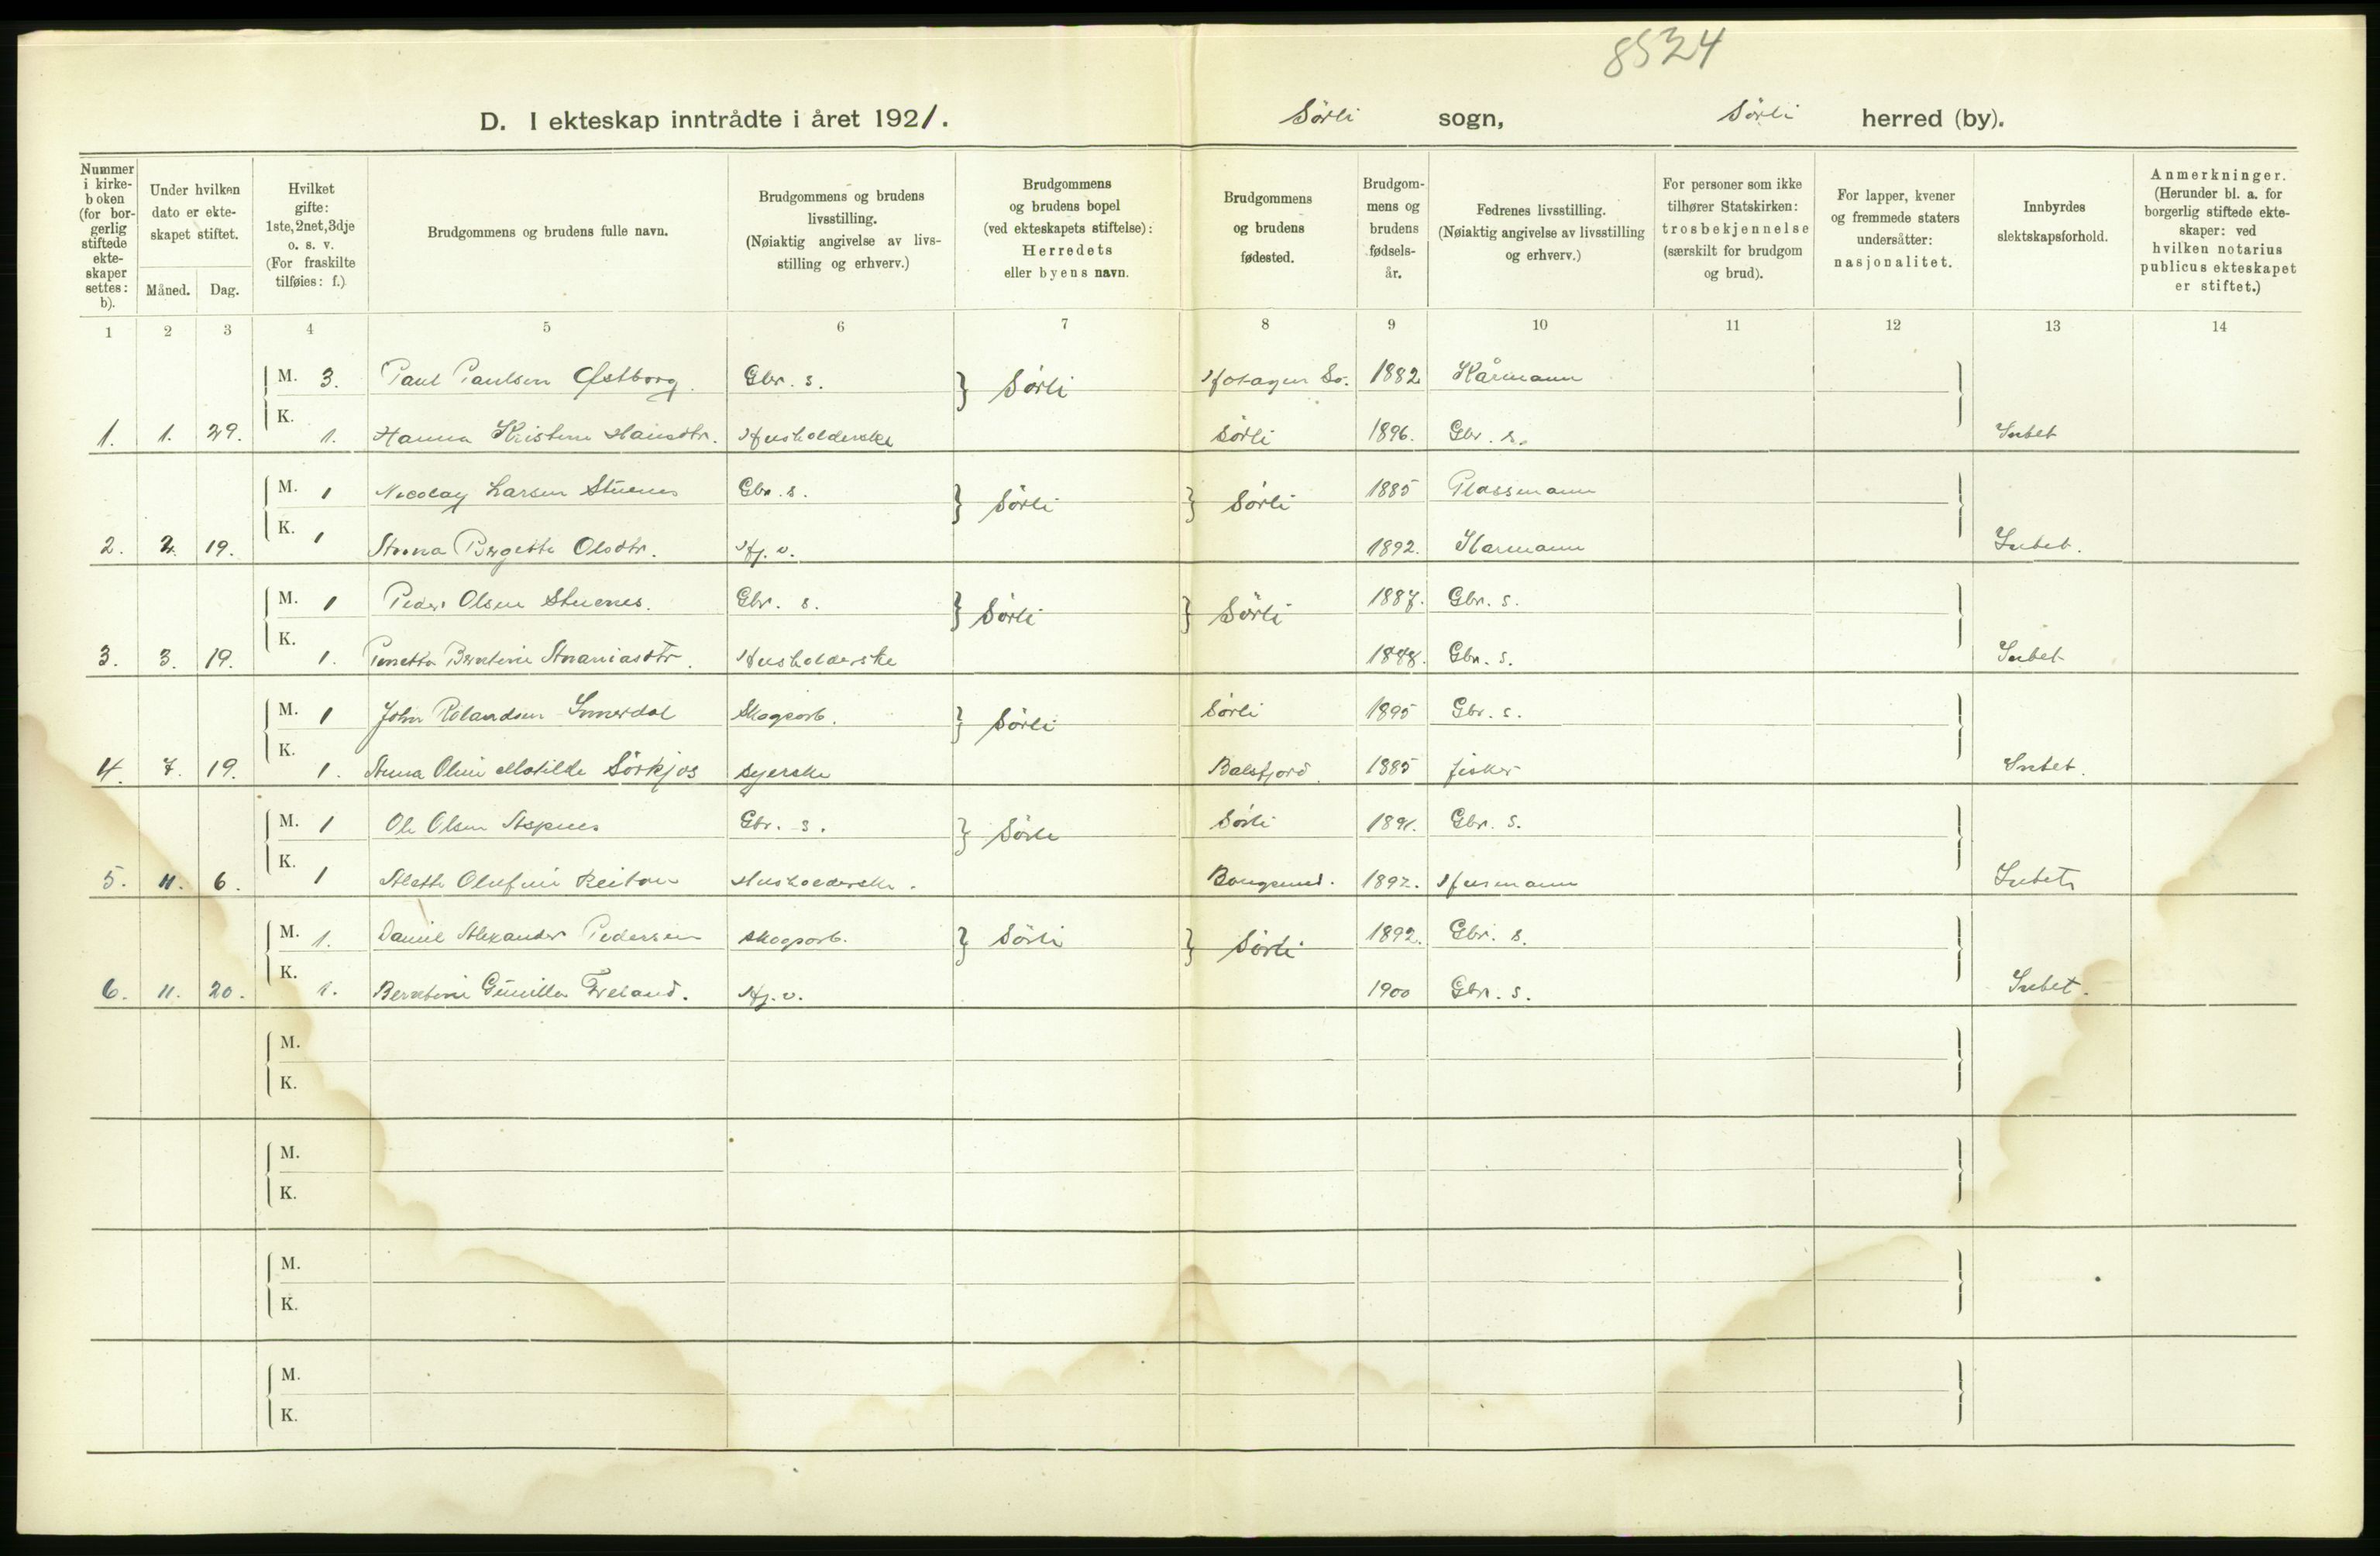 8524
D. I ekteskap inntrådte i året 1921. Sørli sogn, Sørli herred (by).
Nummer i kirkeboken (for borgerlig stiftede ekteskaper settes: b).
Under hvilken dato er ekteskapet stiftet.
Måned. Dag.
Hvilket gifte: 1ste, 2net, 3dje o. s. v. (For fraskilte tilføies: f.)
Brudgommens og brudens fulle navn.
Brudgommens og brudens livsstilling. (Nøiaktig angivelse av livsstilling og erhverv.)
Brudgommens og brudens bopel (ved ekteskapets stiftelse): Herredets eller byens navn.
Brudgommens og brudens fødested.
Brudgommens og brudens fødselsår.
Fedrenes livsstilling. (Nøiaktig angivelse av livsstilling og erhverv.)
For personer som ikke tilhører Statskirken: trosbekjennelse (særskilt for brudgom og brud).
For lapper, kvener og fremmede staters undersåtter: nasjonalitet.
Innbyrdes slektskapsforhold.
Anmerkninger. (Herunder bl. a. for borgerlig stiftede ekteskaper: ved hvilken notarius publicus ekteskapet er stiftet.)
1 2 3 4 5 6 7 8 9 10 11 12 13 14
M. 3. Paul Paulsen Østborg. Gbr. s. Sørli Hotagen Sv. 1882 Kårmann
1. 1. 29. K. 1. Hanna Kristine Hansdtr. Husholderske Sørli 1896. Gbr. s. Intet
M. 1 Nicolay Larsen Stuenes Gbr. s. Sørli Sørli 1885 Plassmann
2. 2. 19. K. 1 Anna Bergette Olsdtr. Hj. v. 1892. Kårmann Intet.
M. 1 Peder Olsen Stuenes. Gbr. s. Sørli Sørli 1887. Gbr. s.
3. 3. 19. K. 1. Berntine Ananiasdtr. Husholderske 1888. Gbr. s. Intet
M. 1 John Rolandsen Innerdal Skogsarb. Sørli Sørli 1895 Gbr. s.
4. 7. 19. K. 1. Anna Oline Matilde Sörkjos Syerske Balsfjord. 1885 fisker Intet.
M. 1 Ole Olsen Aspnes Gbr. s. Sørli Sørli 1891. Gbr. s.
5. 11. 6. K. 1 Alette Olufine Reitan Husholderske. Bangsund. 1892. Husmann Intet
M. 1. Daniel Alexander Pedersen Skogsarb. Sørli Sørli 1892. Gbr. s.
6. 11. 20. K. 1. Berntine Gunilla Tveland. Hj. v. 1900 Gbr. s. Intet.
M.
K.
M.
K.
M.
K.
M.
K.